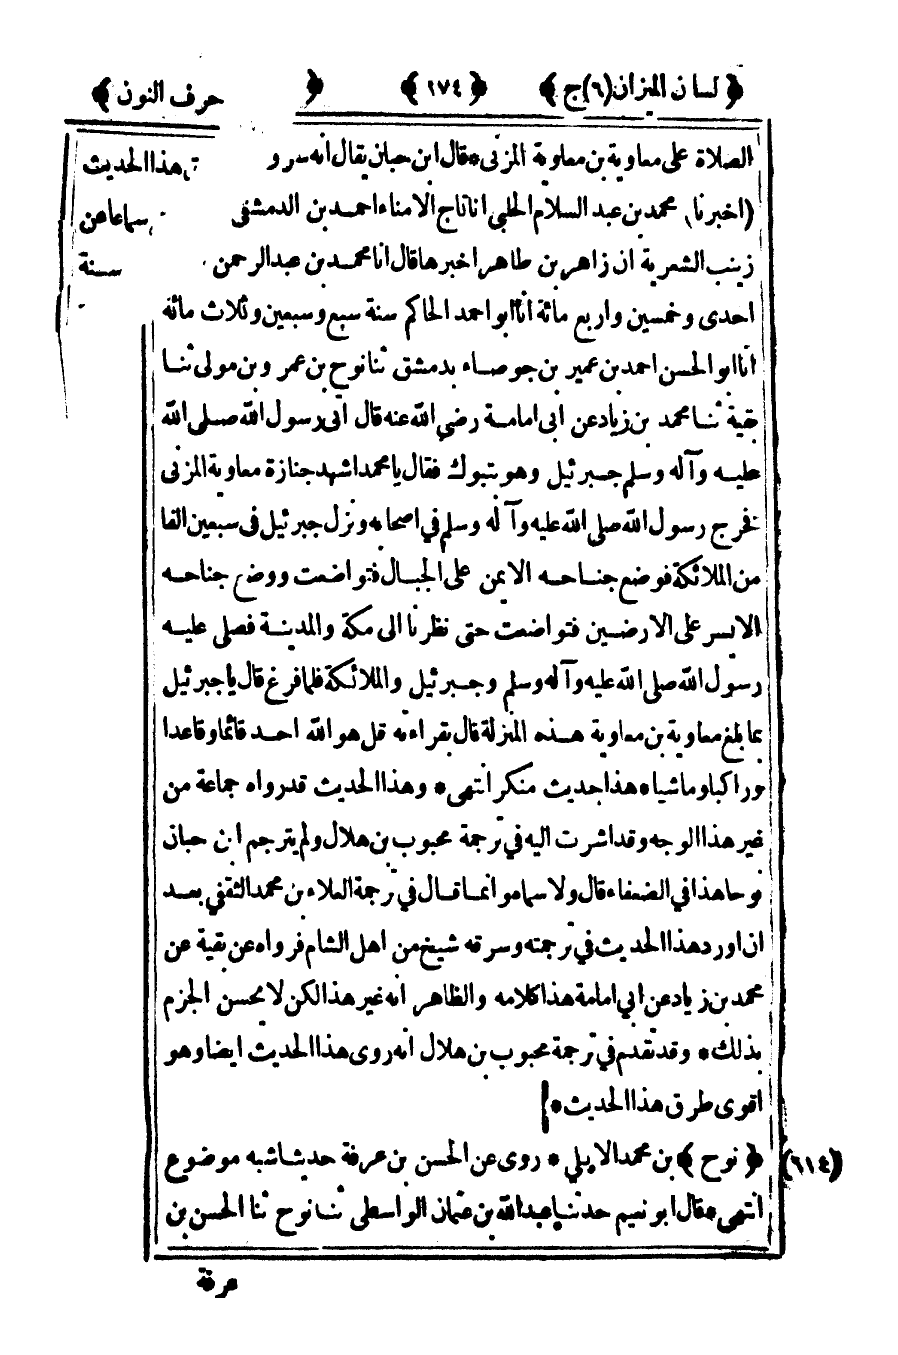 ﴿ لسان الميزان (٦) ج ﴾ ﴿ ١٧٤ ﴾ ﴿ حرف النون ﴾
الصلاة على معاوية بن معاوية المزنى * قال ابن حبان يقال انه سرق هذا الحديث
(اخبرنا) محمد بن عبد السلام الحلبى انا تاج الامناء احمد بن الدمشقى سماعا عن
زينب الشعرية ان زاهر بن طاهر اخبرها قال انا محمد بن عبد الرحمن سنة
احدى وخمسين واربع مائة انا ابو احمد الحاكم سنة سبع وسبعين وثلاث مائة
انا ابو الحسن احمد بن عمير بن جوصاء بدمشق ثنا نوح بن عمر وبن مولى ثنا
بقية ثنا محمد بن زياد عن ابى امامة رضي الله عنه قال اتى رسول الله صلى الله
عليه وآله وسلم جبرئيل وهو بتبوك فقال يا محمد اشهد جنازة معاوية المزنى
فخرج رسول الله صلى الله عليه وآله وسلم في اصحابه ونزل جبرئيل فى سبعين الفا
من الملائكة فوضع جناحه الايمن على الجبال فتواضعت ووضع جناحه
الايسر على الارضين فتواضعت حتى نظرنا الى مكة والمدينة فصلى عليه
رسول الله صلى الله عليه وآله وسلم وجبرئيل والملائكة فلما فرغ قال يا جبرئيل
بما بلغ معاوية بن معاوية هذه المنزلة قال بقراءته قل هو الله احد قائما وقاعدا
وراكبا وماشيا * هذا حديث منكر انتهى * وهذا الحديث قد رواه جماعة من
غير هذا الوجه وقد اشرت اليه في ترجمة محبوب بن هلال ولم يترجم ابن حبان
نوحا هذا في الضعفاء قال ولا سما موانما قال في ترجمة العلاء بن محمد الثقفي بعد
ان اورد هذا الحديث في ترجمته وسرقه شيخ من اهل الشام فرواه عن بقية عن
محمد بن زياد عن ابي امامة هذا كلامه والظاهر انه غير هذا لكن لا يحسن الجزم
بذلك * وقد تقدم في ترجمة محبوب بن هلال انه روى هذا الحديث ايضا وهو
اقوى طرق هذا الحديث *
(٦١٤) ﴿ نوح ﴾ بن محمد الايلي * روى عن الحسن بن عرفة حديثا شبه موضوع
انتهى * قال ابو نعيم حدثنا عبد الله بن عثمان الواسطى ثنا نوح ثنا الحسن بن
عرفة